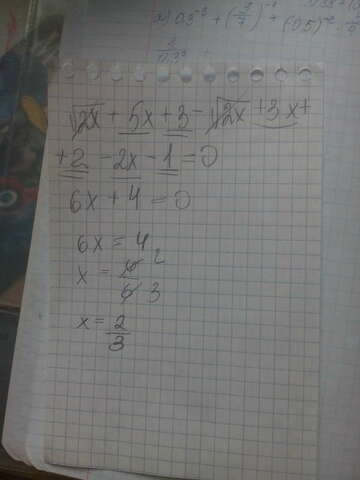 √2x + 5x + 3 - √2x + 3x +
+ 2 - 2x - 1 = 0
6x + 4 = 0
6x = 4
x = 4/6 2/3
x = 2/3